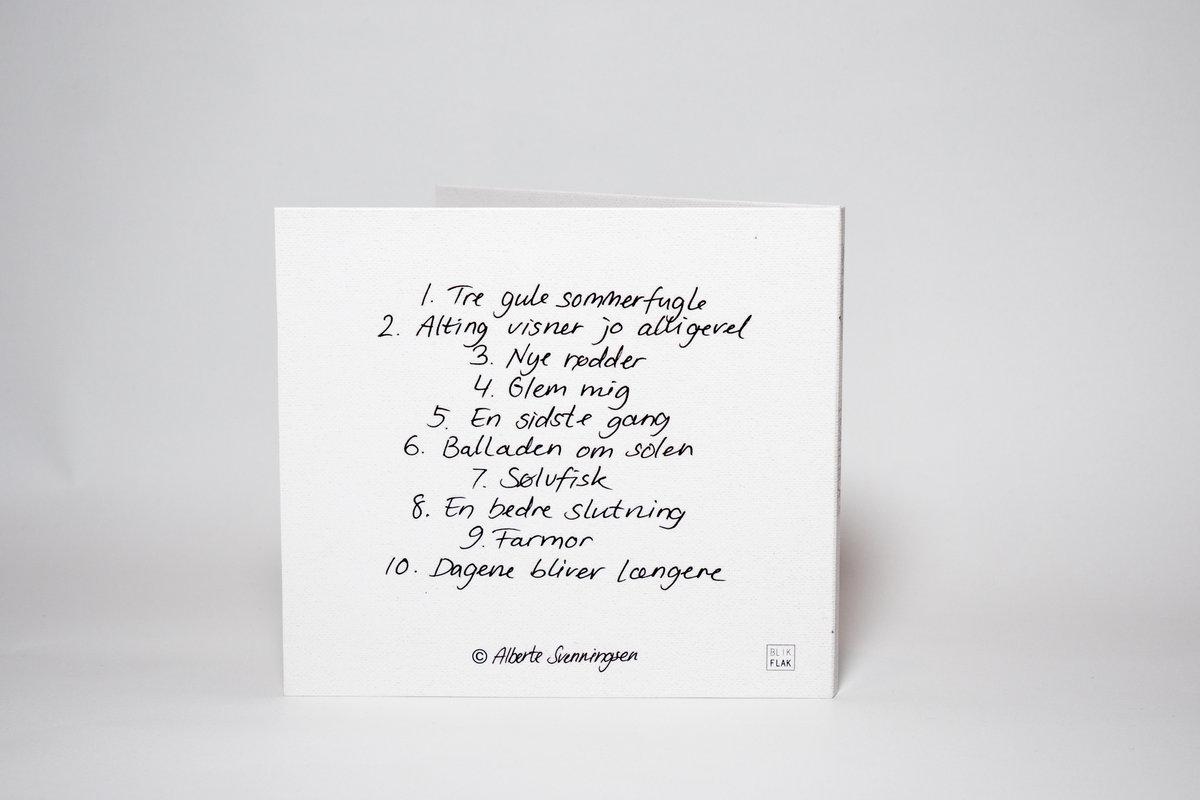 1. Tre gule sommerfugle
2. Alting visner jo alligevel
3. Nye rødder
4. Glem mig
5. En sidste gang
6. Balladen om solen
7. Sølvfisk
8. En bedre slutning
9. Farmor
10. Dagene bliver længere
© Alberte Svenningsen
BLIK
FLAK